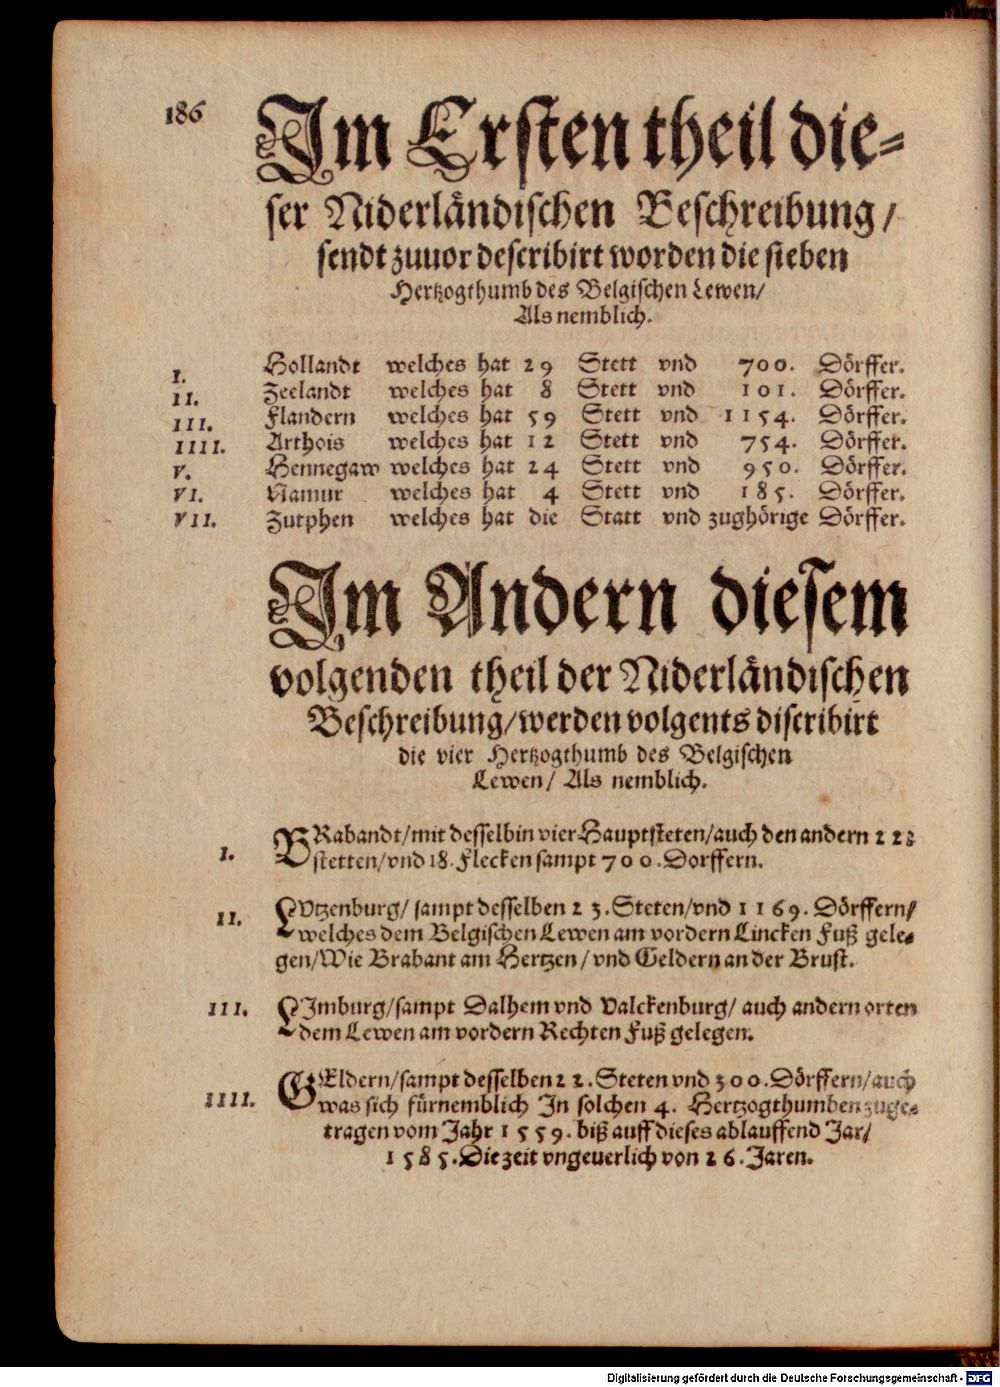 186
Im Ersten theil die-
ser Niderländischen Beschreibung/
sendt zuuor describirt worden die sieben
Hertzogthumb des Belgischen Lewen/
Als nemblich.
I. Hollandt welches hat 29 Stett vnd 700. Dörffer.
II. Zeelandt welches hat 8 Stett vnd 101. Dörffer.
III. Flandern welches hat 59 Stett vnd 1154. Dörffer.
IIII. Arthois welches hat 12 Stett vnd 754. Dörffer.
V. Hennegaw welches hat 24 Stett vnd 950. Dörffer.
VI. Namur welches hat 4 Stett vnd 185. Dörffer.
VII. Zutphen welches hat die Statt vnd zughörige Dörffer.
Im Andern diesem
volgenden theil der Niderländischen
Beschreibung/werden volgents discribirt
die vier Hertzogthumb des Belgischen
Lewen/ Als nemblich.
I. BRabandt/mit desselbin vier Hauptsteten/auch den andern
stetten/vnd 18. Flecken sampt 700. Dorffern.
II. LVtzenburg/ sampt desselben 23. Steten/vnd 1169. Dörffern/
welches dem Belgischen Lewen am vordern Lincken Fuß gele-
gen/Wie Brabant am Hertzen/ vnd Geldern an der Brust.
III. LImburg/sampt Dalhem vnd Valckenburg/ auch andern orten
dem Lewen am vordern Rechten Fuß gelegen.
IIII. GEldern/sampt desselben 22. Steten vnd 300. Dörffern/auch
was sich fürnemblich In solchen 4. Hertzogthumben zuge-
tragen vom Jahr 1559. biß auff dieses ablauffend Jar/
1585. Die zeit vngeuerlich von 26. Jaren.
Digitalisierung gefördert durch die Deutsche Forschungsgemeinschaft - DFG